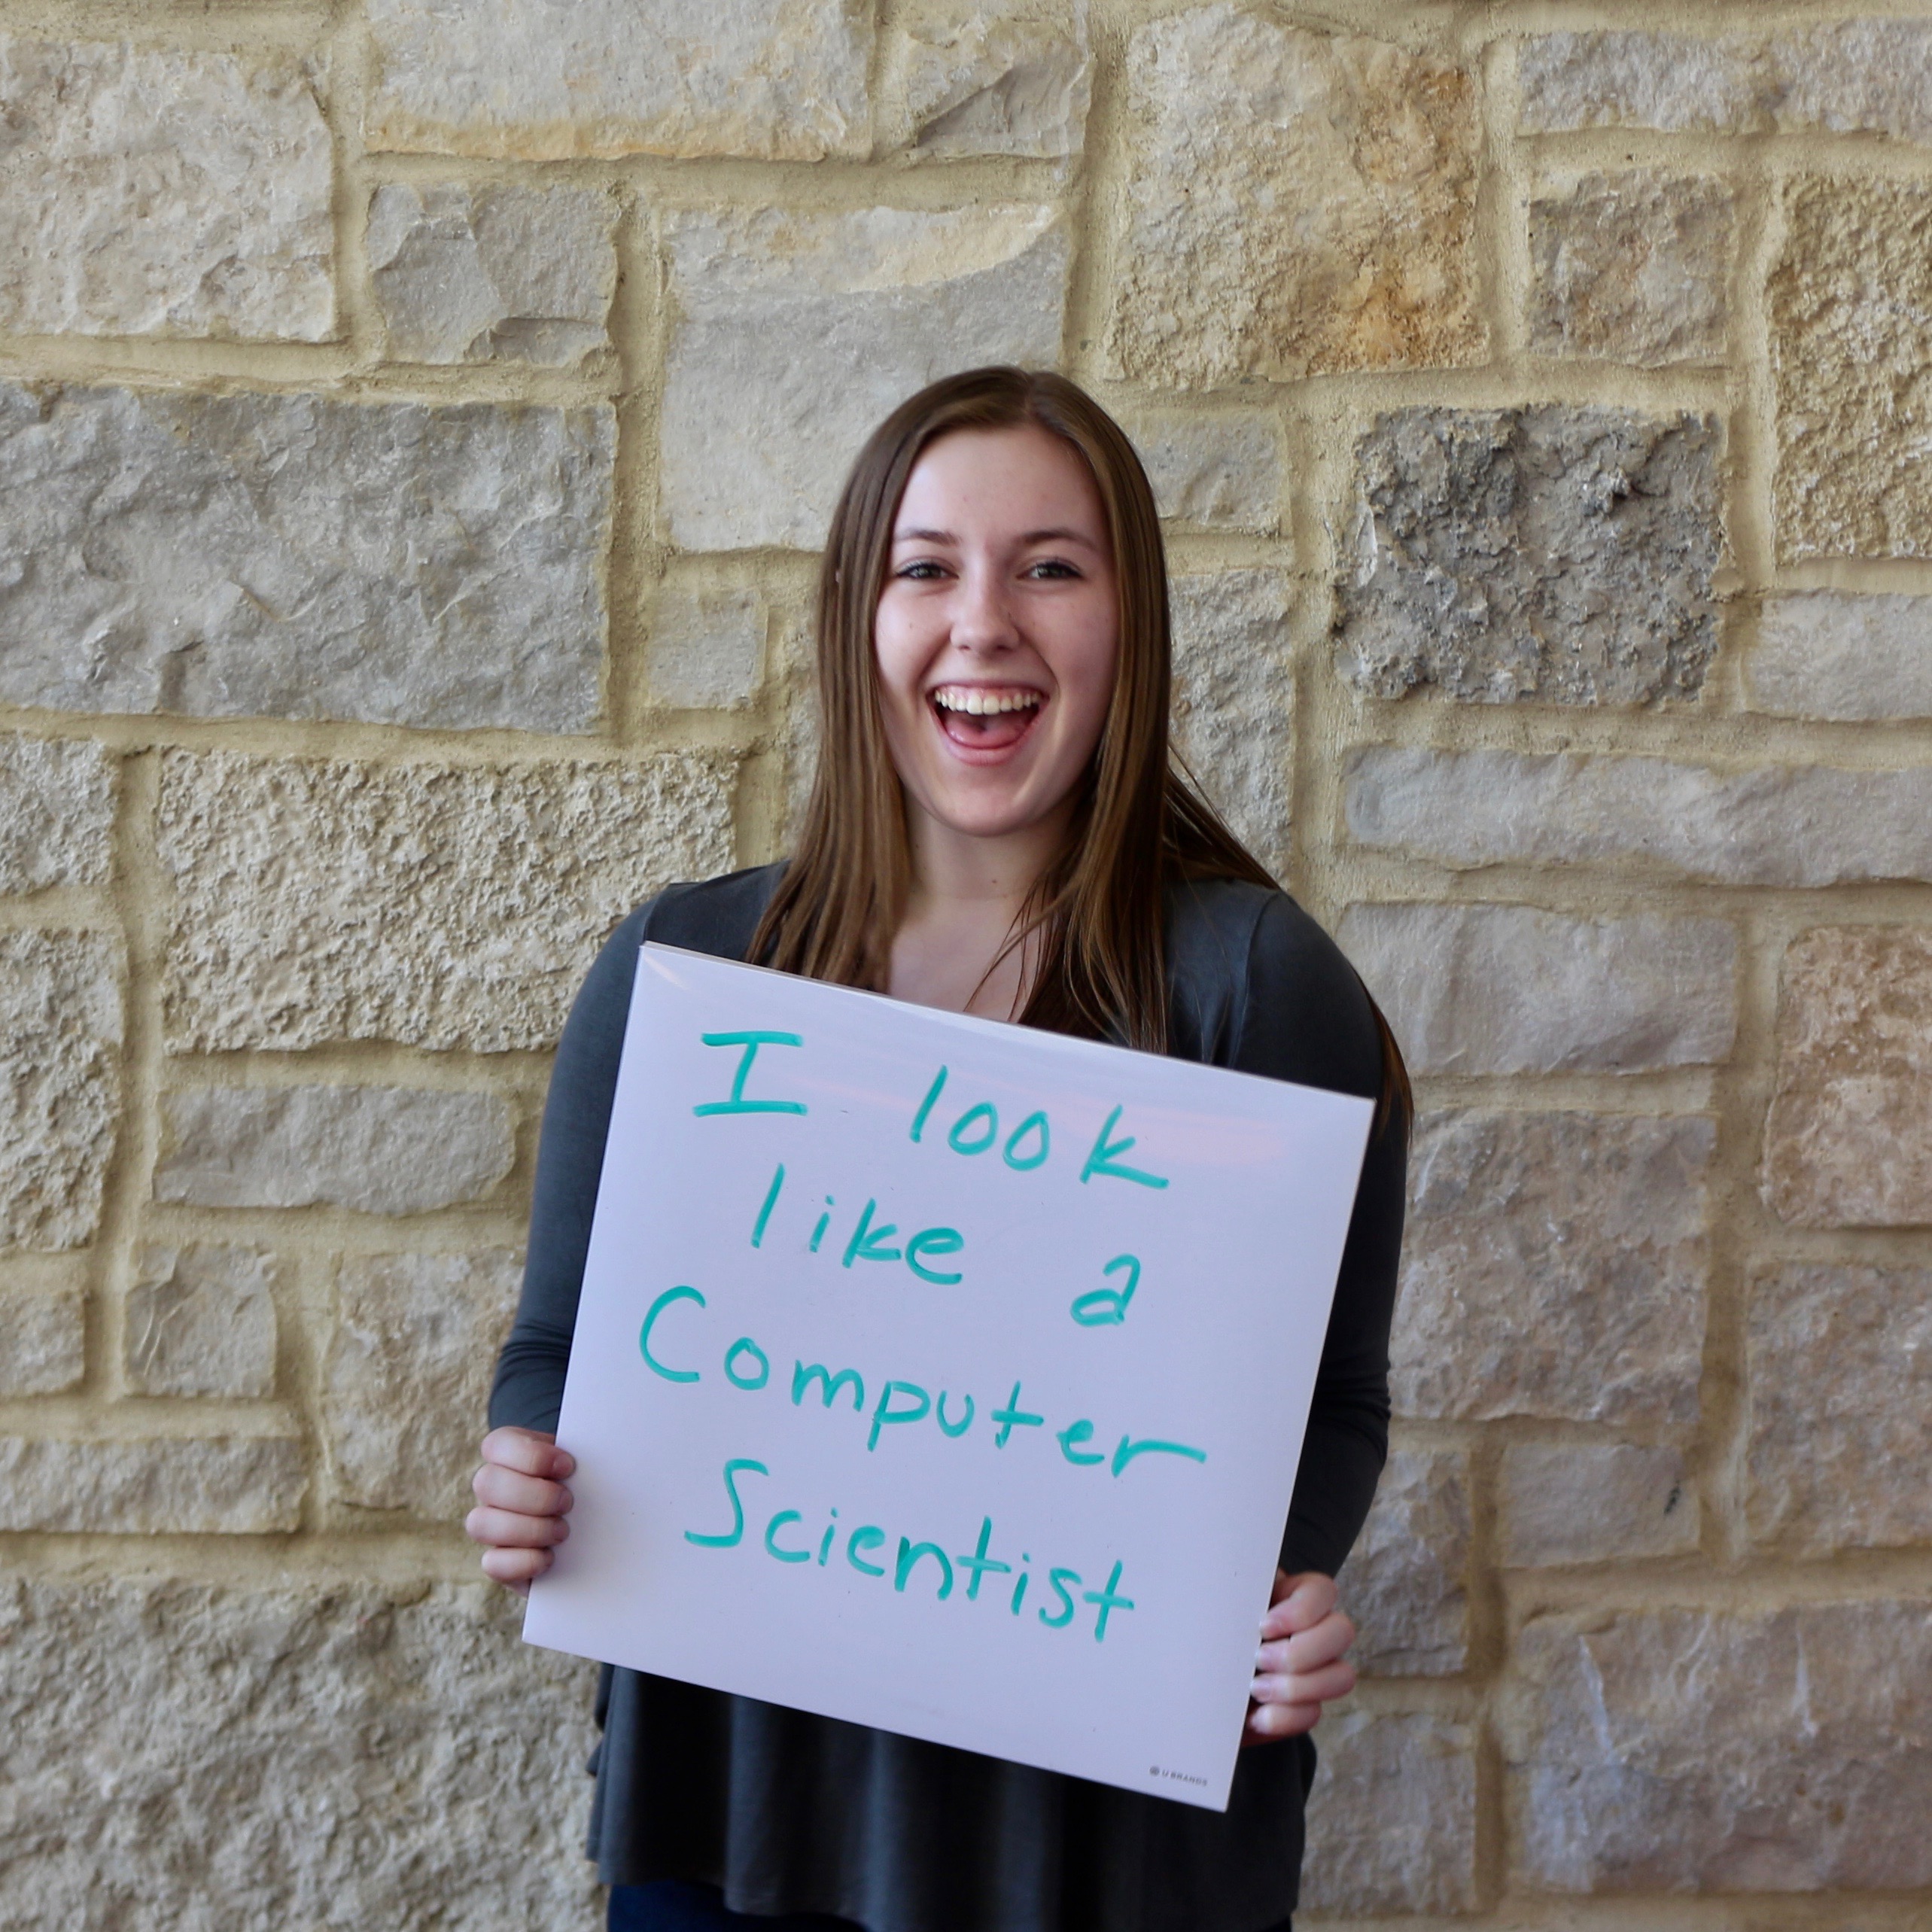 I look
like a
Computer
Scientist
U BRANDS